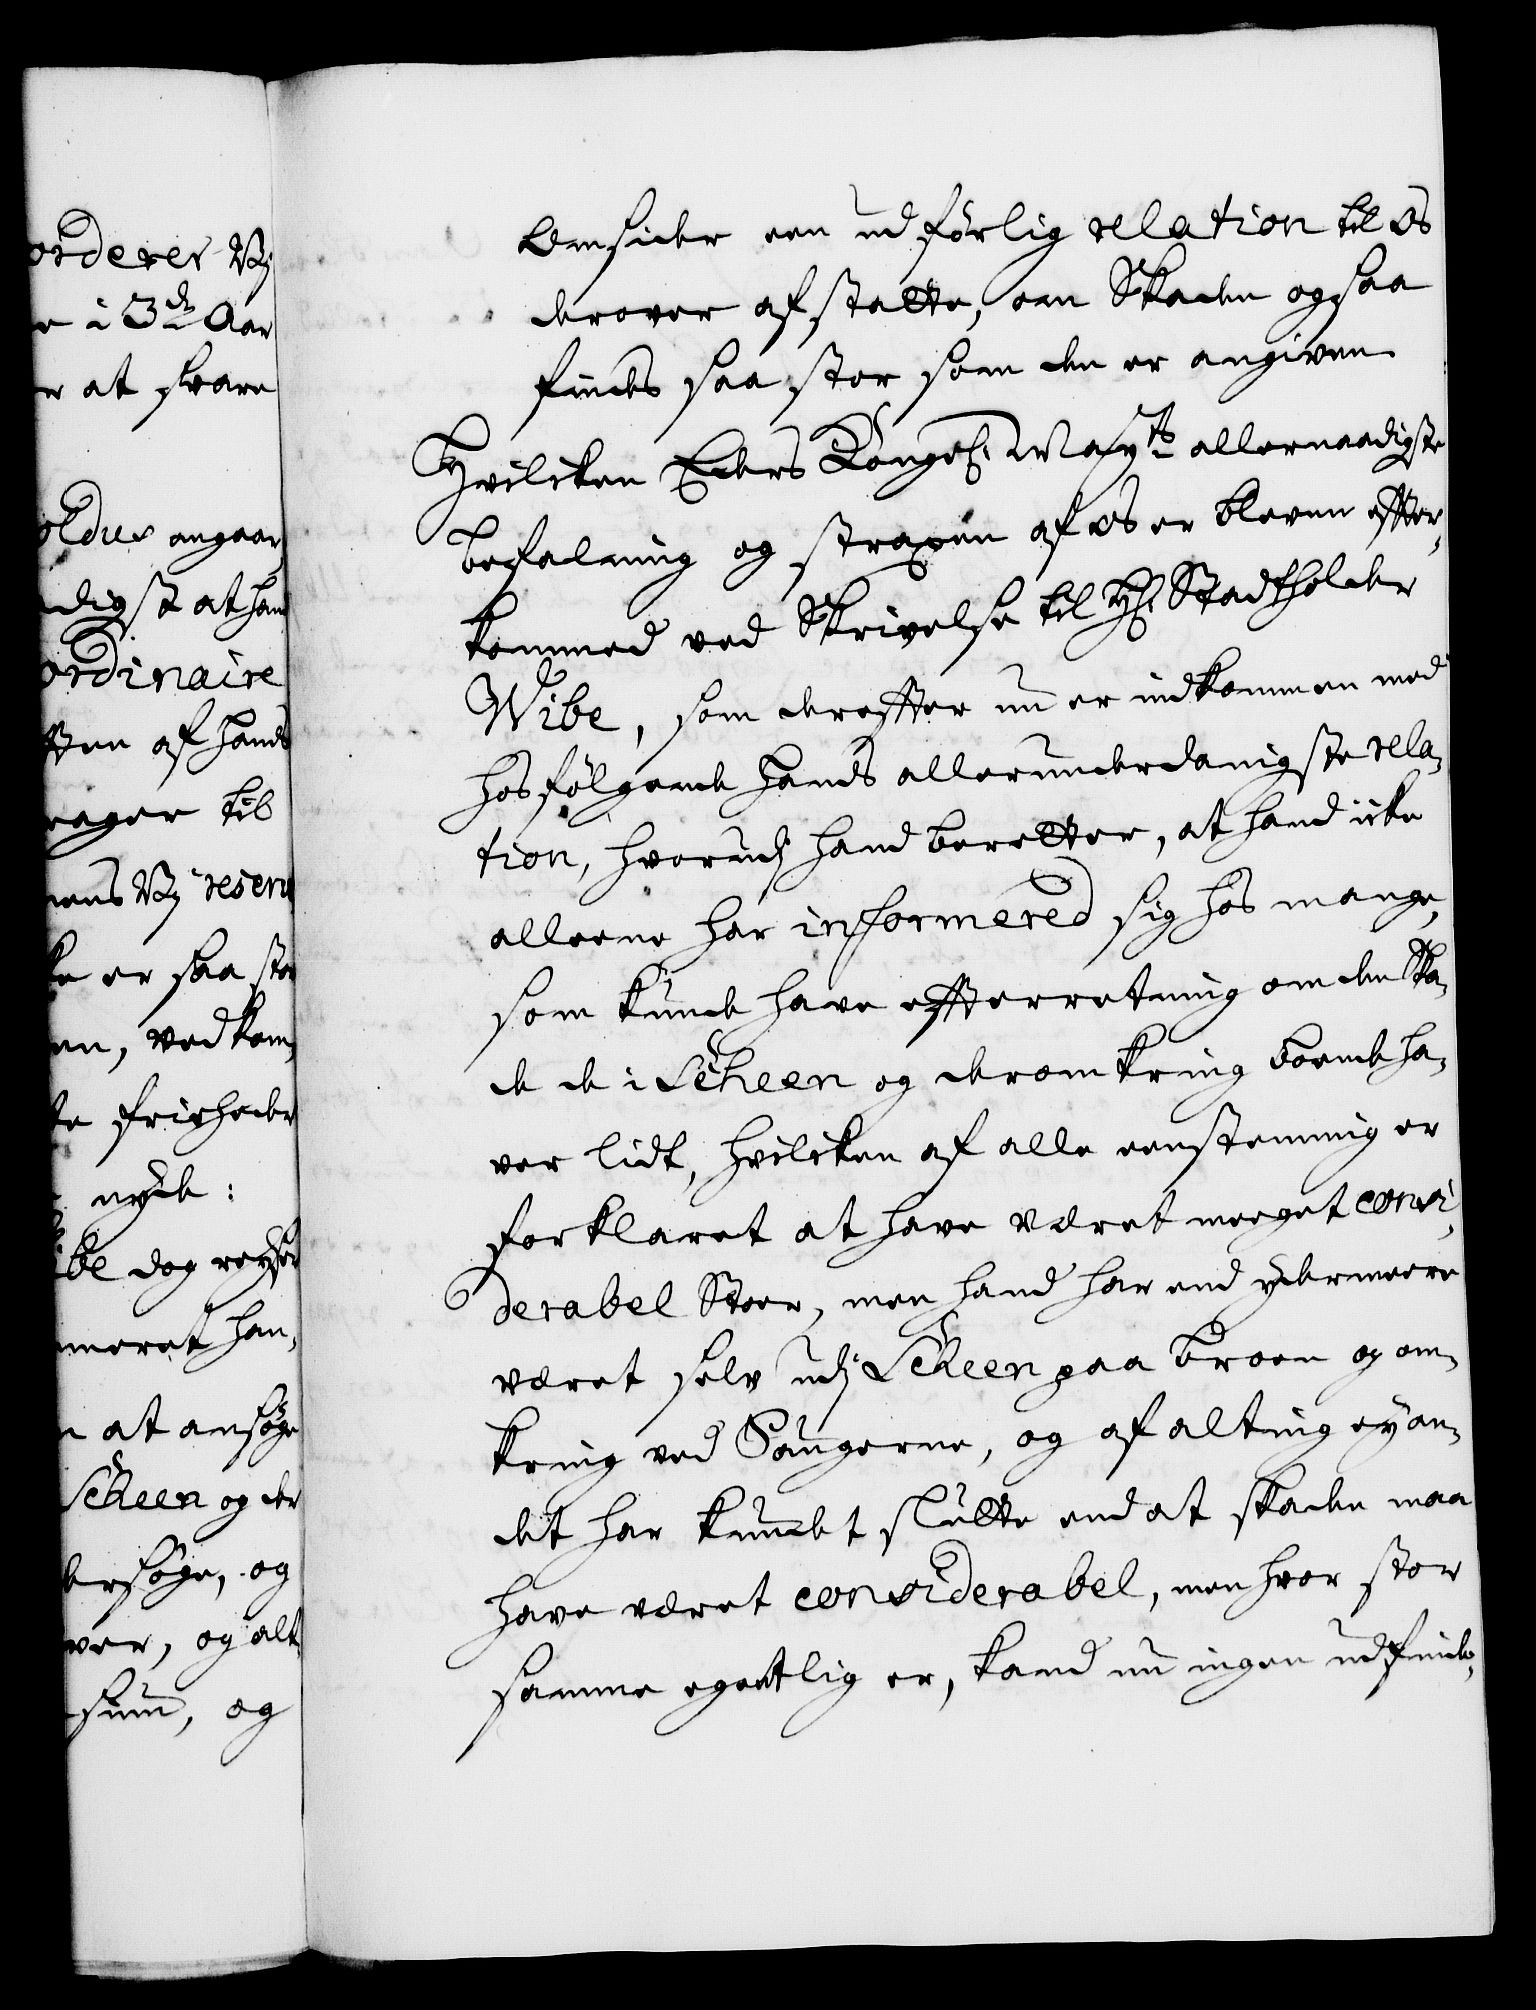 orderer Vi
e i 3de Aar
r at svare
oldux angaar,
digst at hand
ordinaire
ften af hands
rager til
nens Vi reserv
ke er saa stor
en, vedkom,
te friheder
nyde:
ibe dog reyser
meret han,
n at ansøge
Scheen og der
dersøge, og
ver, og alt
sum, og
omsider een udførlig relation til os
derover afstatte, om Skaden ogsaa
findes saa stor som den er angiven.
Hvilcken Eders Kongel: Mayts allernaadigste
befalning og straxen af os er bleven effter,
kommed ved Skrivelse til H: Stadtholder
Wibe, som dereffter nu er indkommen med
hosfølgende hands allerunderdanigste rela,
tion, hvorudj hand beretter, at hand icke
alleene har informered sig hos mange,
som kunde have effterretning om den Ska,
de de i Scheen og deromkring boende ha,
ver lidt, hvilcken af alle eenstemmig er
forklaret at have været meeget consi,
derabel Stoer, men hand har end ydermeere
været selv udj Scheen paa broen og om,
kring ved Saugerne, og af alting ey an,
det har kundet slutte end at skaden maa
have været considerabel, men hvor stor
samme egentlig er, kand nu ingen udfinde,